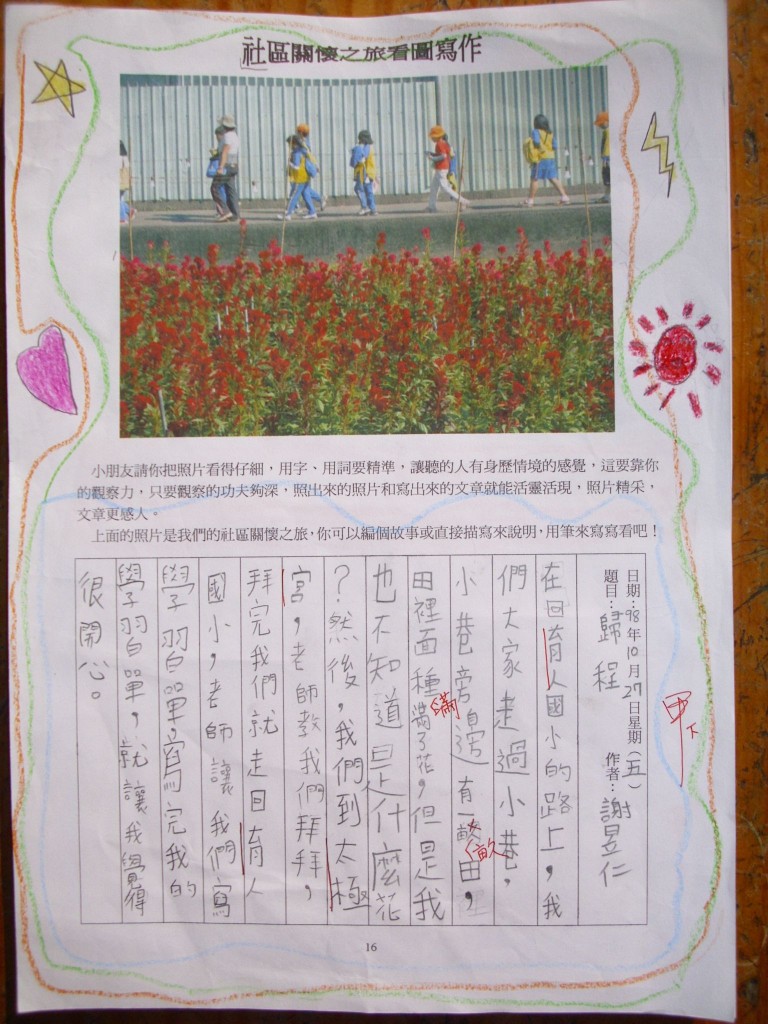 社區關懷之旅看圖寫作
小朋友請你把照片看得仔細，用字、用詞要精準，讓聽的人有身歷情境的感覺，這要靠你
的觀察力，只要觀察的功夫夠深，照出來的照片和寫出來的文章就能活靈活現，照片精采，
文章更感人。
上面的照片是我們的社區關懷之旅，你可以編個故事或直接描寫來說明，用筆來寫寫看吧！
日期：98年10月27日星期（五）
題目：歸程 作者：謝昱仁
甲下
在回育人國小的路上，我
們大家走過小巷，
小巷旁邊有一畝田，
畝
田裡面種滿了花，但是我
滿
也不知道是什麼花
？然後，我們到太極
宮，老師教我們拜拜，
拜完我們就走回育人
國小，老師讓我們寫
學習單，寫完我的
學習單，就讓我覺得
很開心。
16